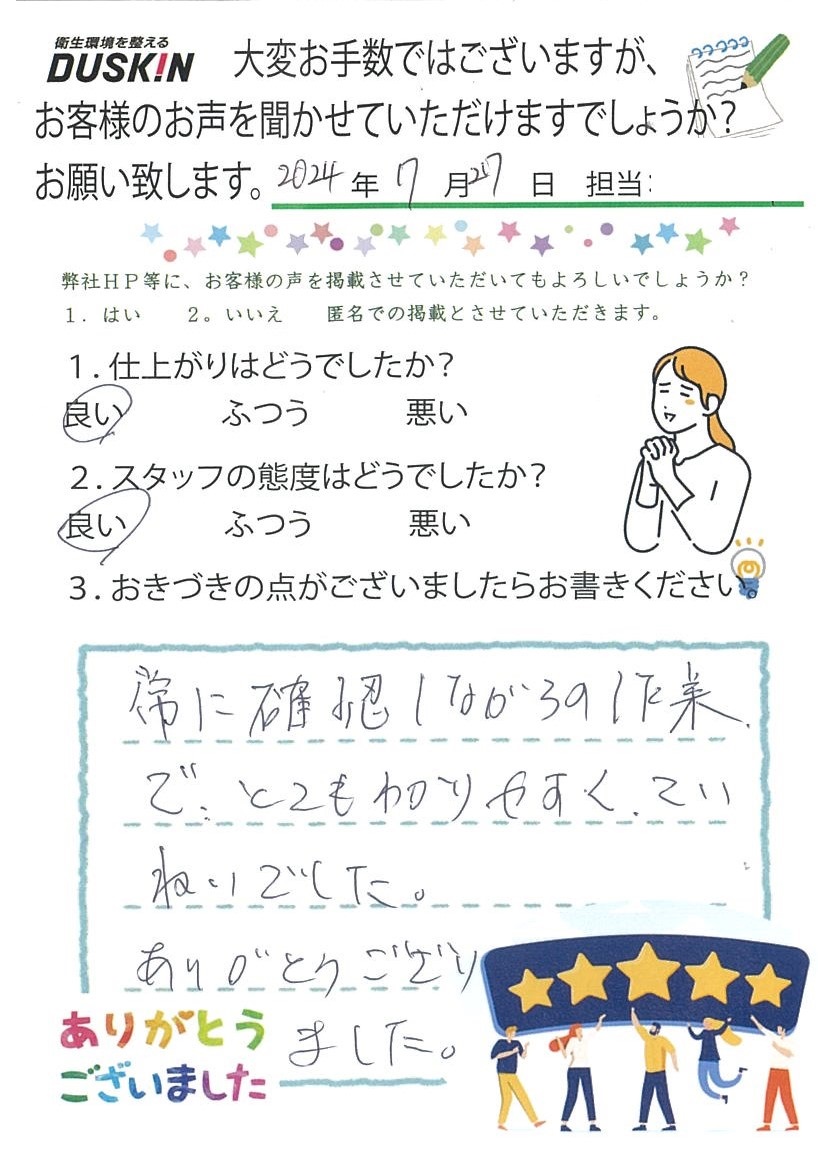 衛生環境を整える
DUSKIN
大変お手数ではございますが、
お客様のお声を聞かせていただけますでしょうか？
お願い致します。2024年7月27日 担当:
弊社ＨＰ等に、お客様の声を掲載させていただいてもよろしいでしょうか？
１．はい ２。いいえ 匿名での掲載とさせていただきます。
１．仕上がりはどうでしたか？
良い ふつう 悪い
２．スタッフの態度はどうでしたか？
良い ふつう 悪い
３．おきづきの点がございましたらお書きください。
常に確認しながらの
で、とてもわかりやすく、てい
ねいでした。
ありがとうござい
ました。
ありがとう
ございました